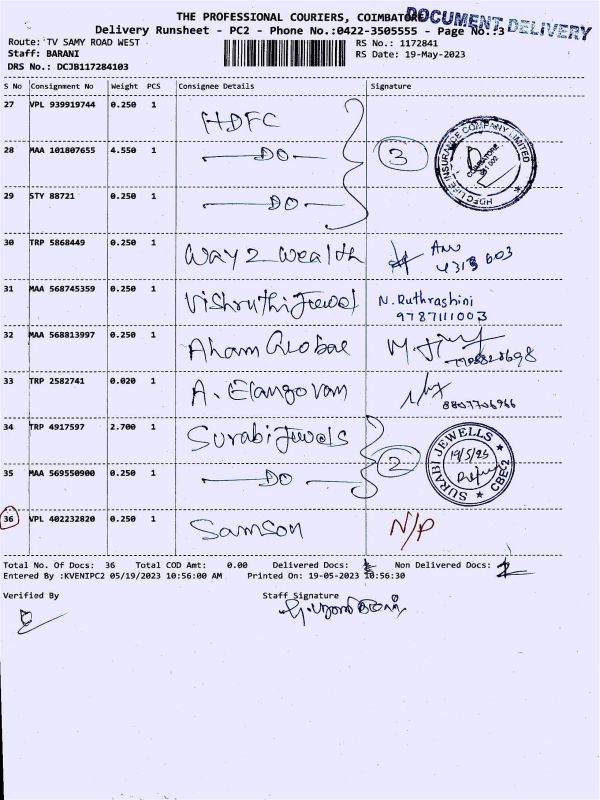 THE PROFESSIONAL COURIERS, COIMBATORE
DOCUMENT DELIVERY
Delivery Runsheet - PC2 - Phone No.:0422-3505555 - Page No.:3
Route: TV SAMY ROAD WEST
RS No.: 1172841
Staff: BARANI
RS Date: 19-May-2023
DRS No.: DCJB117284103
S No Consignment No Weight PCS Consignee Details Signature
27 VPL 939919744 0.250 1 HDFC
28 MAA 101807655 4.550 1 — DO — 3
HDFC LIFE INSURANCE COMPANY LIMITED
COIMBATORE
29 STY 88721 0.250 1 — DO —
30 TRP 5868449 0.250 1 Way 2 Wealth
31 MAA 568745359 0.250 1 Vishruthi Jewel N. Ruthrashini
9787111003
32 MAA 568813997 0.250 1 Aham Global
33 TRP 2582741 0.020 1 A. Elangovan
8807706966
34 TRP 4917597 2.700 1 Surabi Jewels 2
SURABI JEWELLS
CBE-2
35 MAA 569550900 0.250 1 — DO —
36 VPL 402232820 0.250 1 Samson N/P
Total No. Of Docs: 36 Total COD Amt: 0.00 Delivered Docs: Non Delivered Docs:
Entered By :KVENIPC2 05/19/2023 10:56:00 AM Printed On: 19-05-2023 10:56:30
Verified By Staff Signature